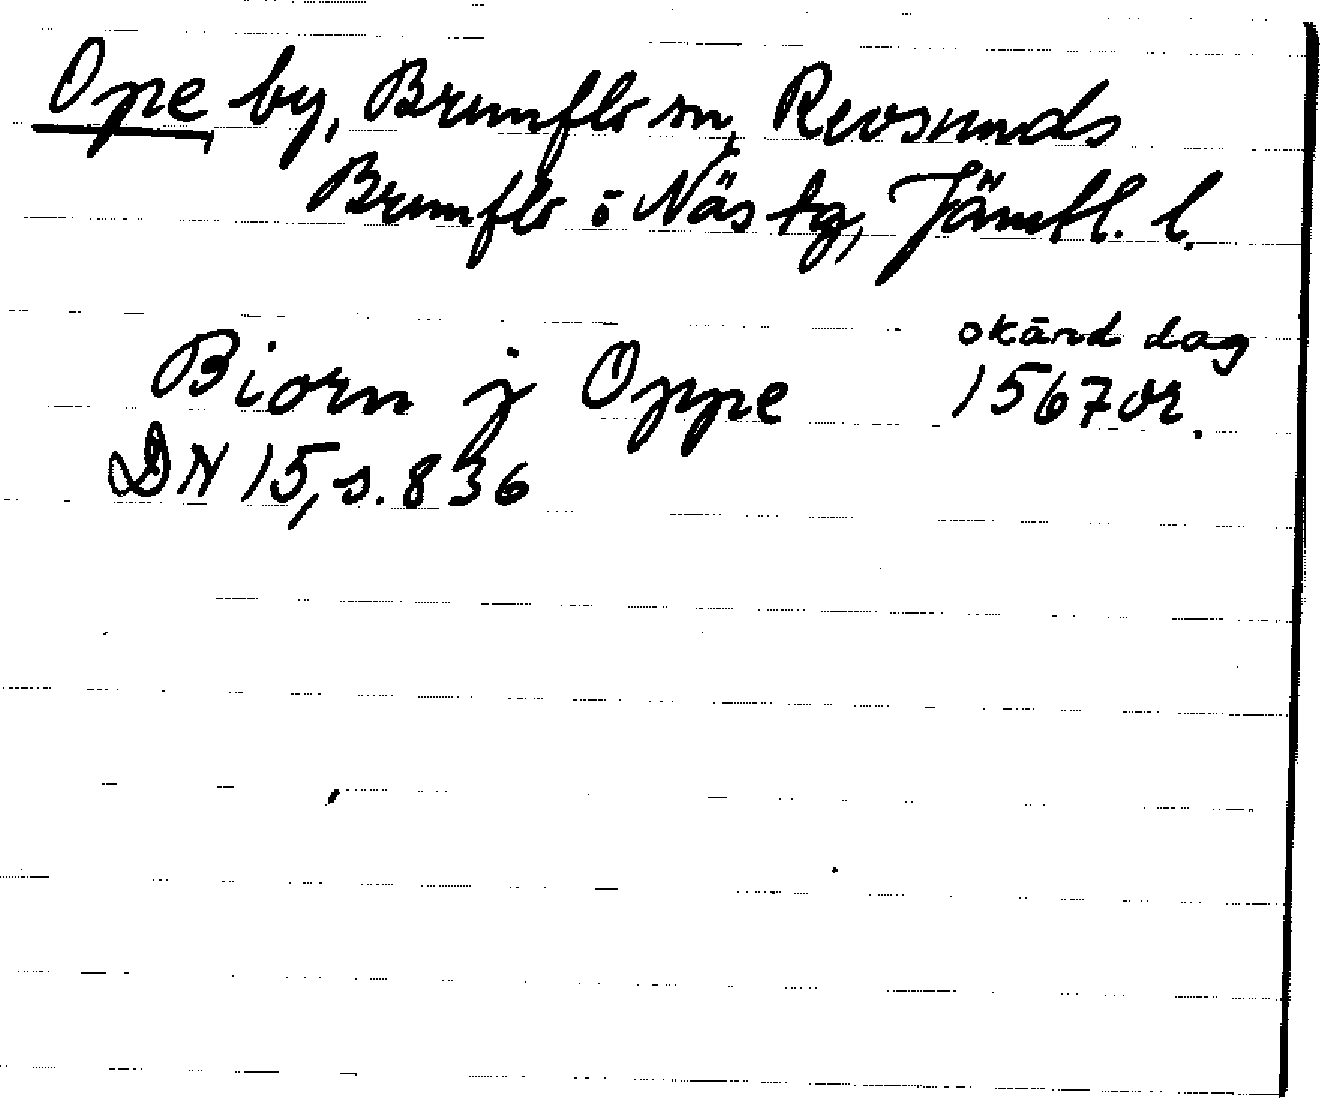 Ope by, Brunflo sn, Revsunds
Brunflo o Näs tg, Jämtl. l.
Biorn j Oppe okänd dag
1567 or.
DN 15, s. 836